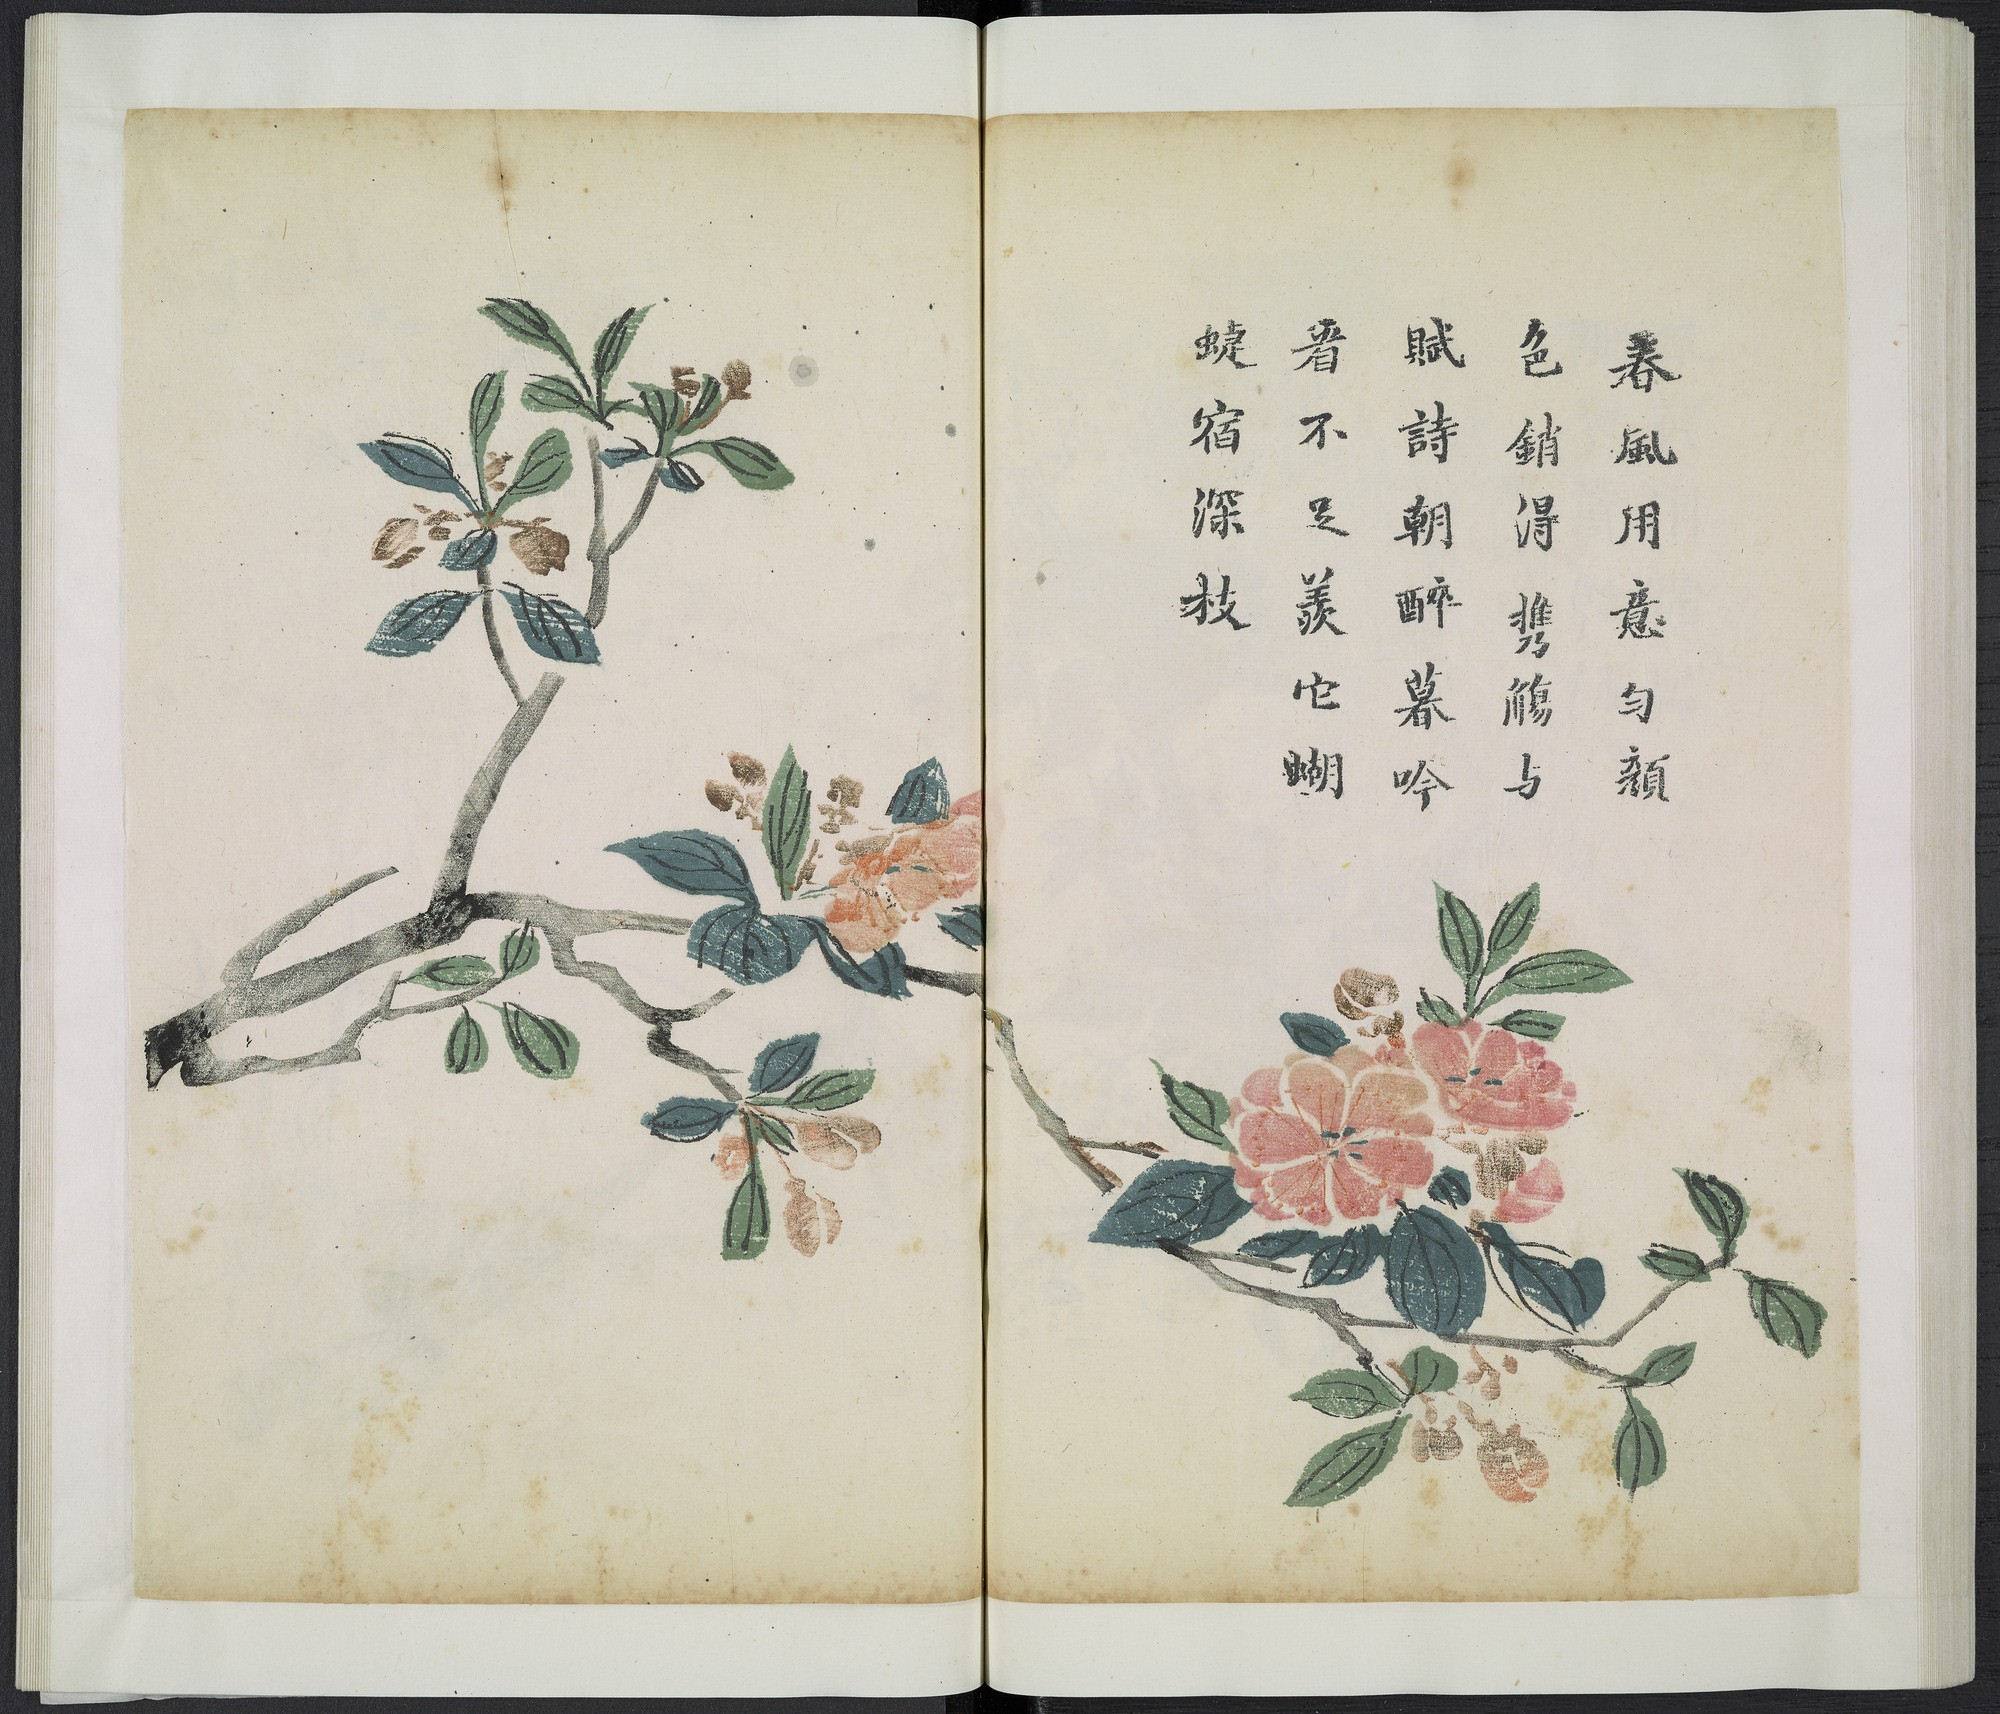 春風用意勻顏
色銷得㩗觴与
賦詩朝醉暮吟
看不足羨它蝴
蜨宿深枝